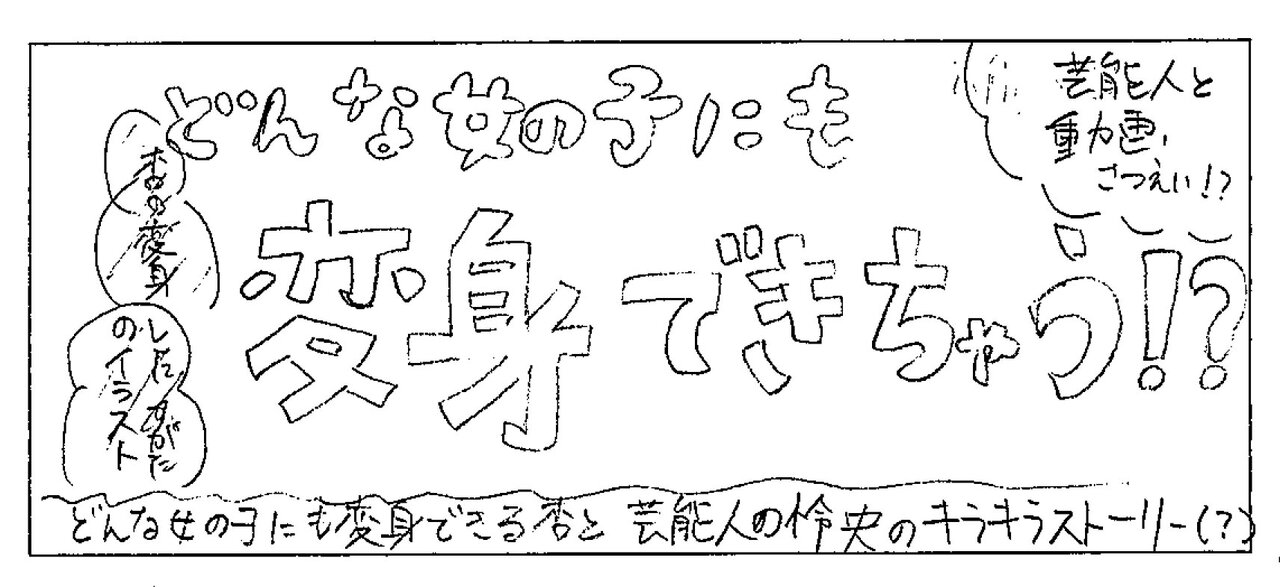 どんな女の子にも
変身できちゃう!?
芸能人と
動画
さつえい!?
杏の変身
した すがた
のイラスト
どんな女の子にも変身できる杏と 芸能人の怜央のキラキラストーリー(?)